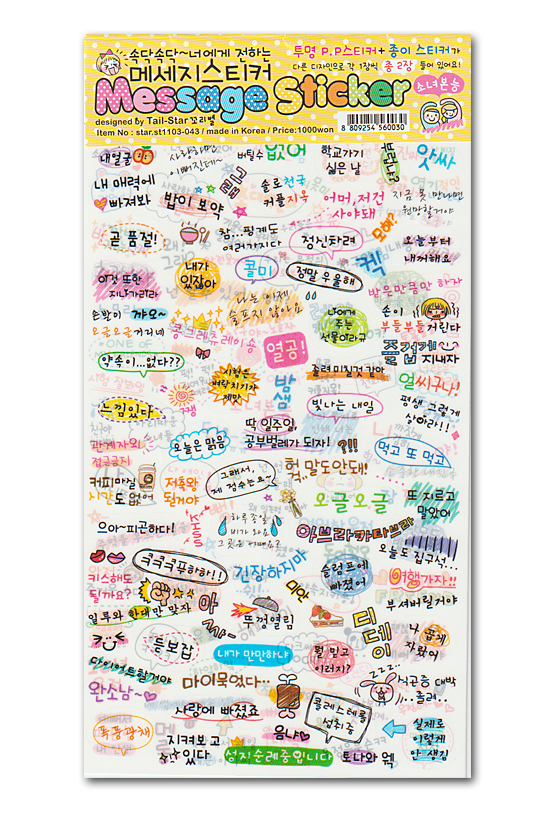 속닥속닥~너에게 전하는
메세지스티커
투명 P.P스티커+종이 스티커가
다른 디자인으로 각 1장씩 총 2장 들어 있어요!
Message Sticker
소녀본능
designed by Tail-Star 꼬리별
Item No : star.st1103-043 / made in Korea / Price:1000won
8 809254 560030
내얼굴
버틸수 없어
학교가기
싫은 날
앗싸
내 매력에
빠져봐
밥이 보약
솔로천국
커플지옥
어머, 저건
사야돼
지금 못 만나면
원망할거야
곧 품절!
참... 핑계도
여러가지다
정신차려
모해?
오늘부터
내꺼해요
이것 또한
지나가리라
내가
있잖아
콜미
정말 우울해
켁
받은만큼만 하자
나는 이제
슬프지 않아요
손발이 꺄오~
오글오글거리네
콩그레츄레이숑
열공!
너에게
주는
선물이라구
손이
부들부들거린다
약속이...없다??
졸려 미칠것 같아
즐겁게
지내자
시험은
벼락치기가
제맛
밤샘
얼씨구나!
느낌있다
빛나는 내일
평생 그렇게
살아라!!
관계자외
접근금지
오늘은 맑음
딱 일주일,
공부벌레가 되자!
?!!
먹고 또 먹고
헉, 말도안돼!
커피마실
시간도 없어
저축왕
될거야
그래서,
제 점수는요~
오글오글
또 지르고
말았어
으아~피곤하다!
KISS
하루종일
비가 와요
아브라카타브라
오늘도 집구석...
키스해도
될까요?
크크크푸하하!!
긴장하지마
슬럼프에
빠졌어
여행가자!!
일루와 한대만 맞자
미안
뚜껑열림
부셔버릴거야
아싸~
디데이
나 곱게
자랐어
득보잡
내가 만만하냐
뭘 믿고
이러지?
다이어트할거야
zzz..
완소남~
마이묵었다...
식곤증 대박
..졸려..
사랑에 빠졌죠
콜레스테롤
섭취중
폭풍광채
음냐
실제로
이렇게
안 생김
지켜보고
있다
성지순례중입니다
토나와 웩